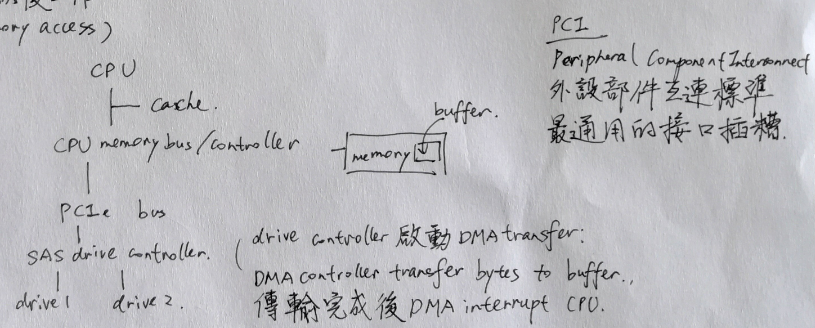 ory access)
CPU
cache.
CPU memory bus/controller
memory
buffer.
PCIe bus
SAS drive controller.
drive1 drive2.
drive controller 啟動 DMA transfer:
DMA controller transfer bytes to buffer.,
傳輸完成後 DMA interrupt CPU.
PCI
Peripheral Component Interconnect
外設部件互連標準
最通用的接口插糟.